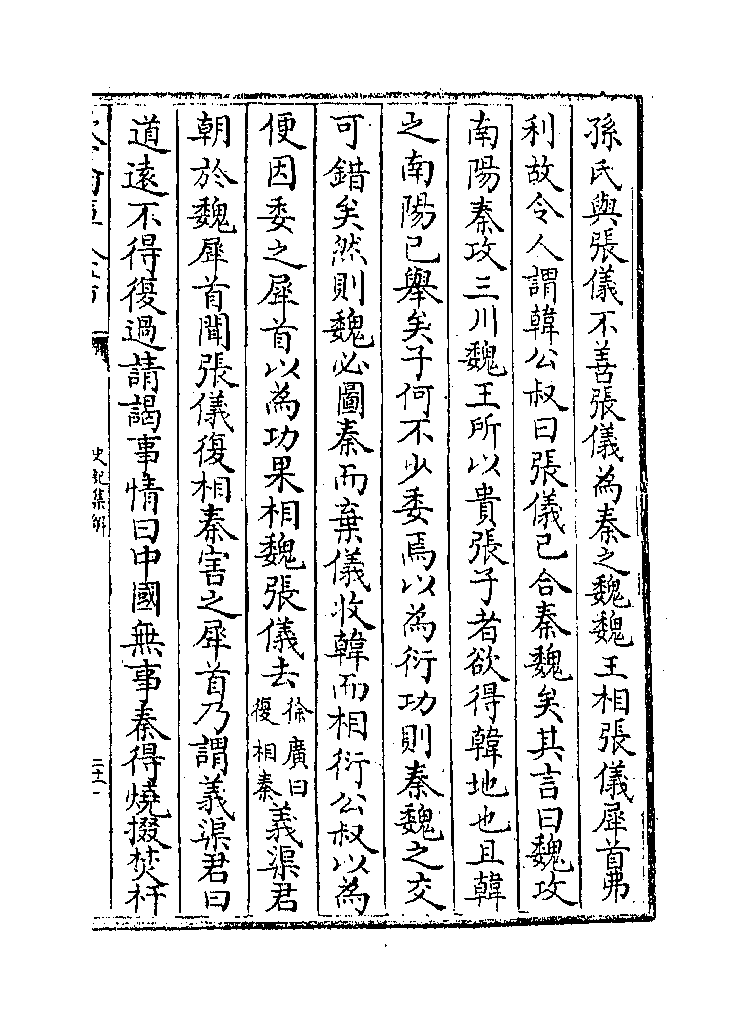 孫氏與張儀不善張儀為秦之魏魏王相張儀犀首弗
利故令人謂韓公叔曰張儀已合秦魏矣其言曰魏攻
南陽秦攻三川魏王所以貴張子者欲得韓地也且韓
之南陽已舉矣子何不少委焉以為衍功則秦魏之交
可錯矣然則魏必圖秦而棄儀收韓而相衍公叔以為
便因委之犀首以為功果相魏張儀去徐廣曰復相秦義渠君
朝於魏犀首聞張儀復相秦害之犀首乃謂義渠君曰
道遠不得復過請謁事情曰中國無事秦得燒掇焚杅
史記集解